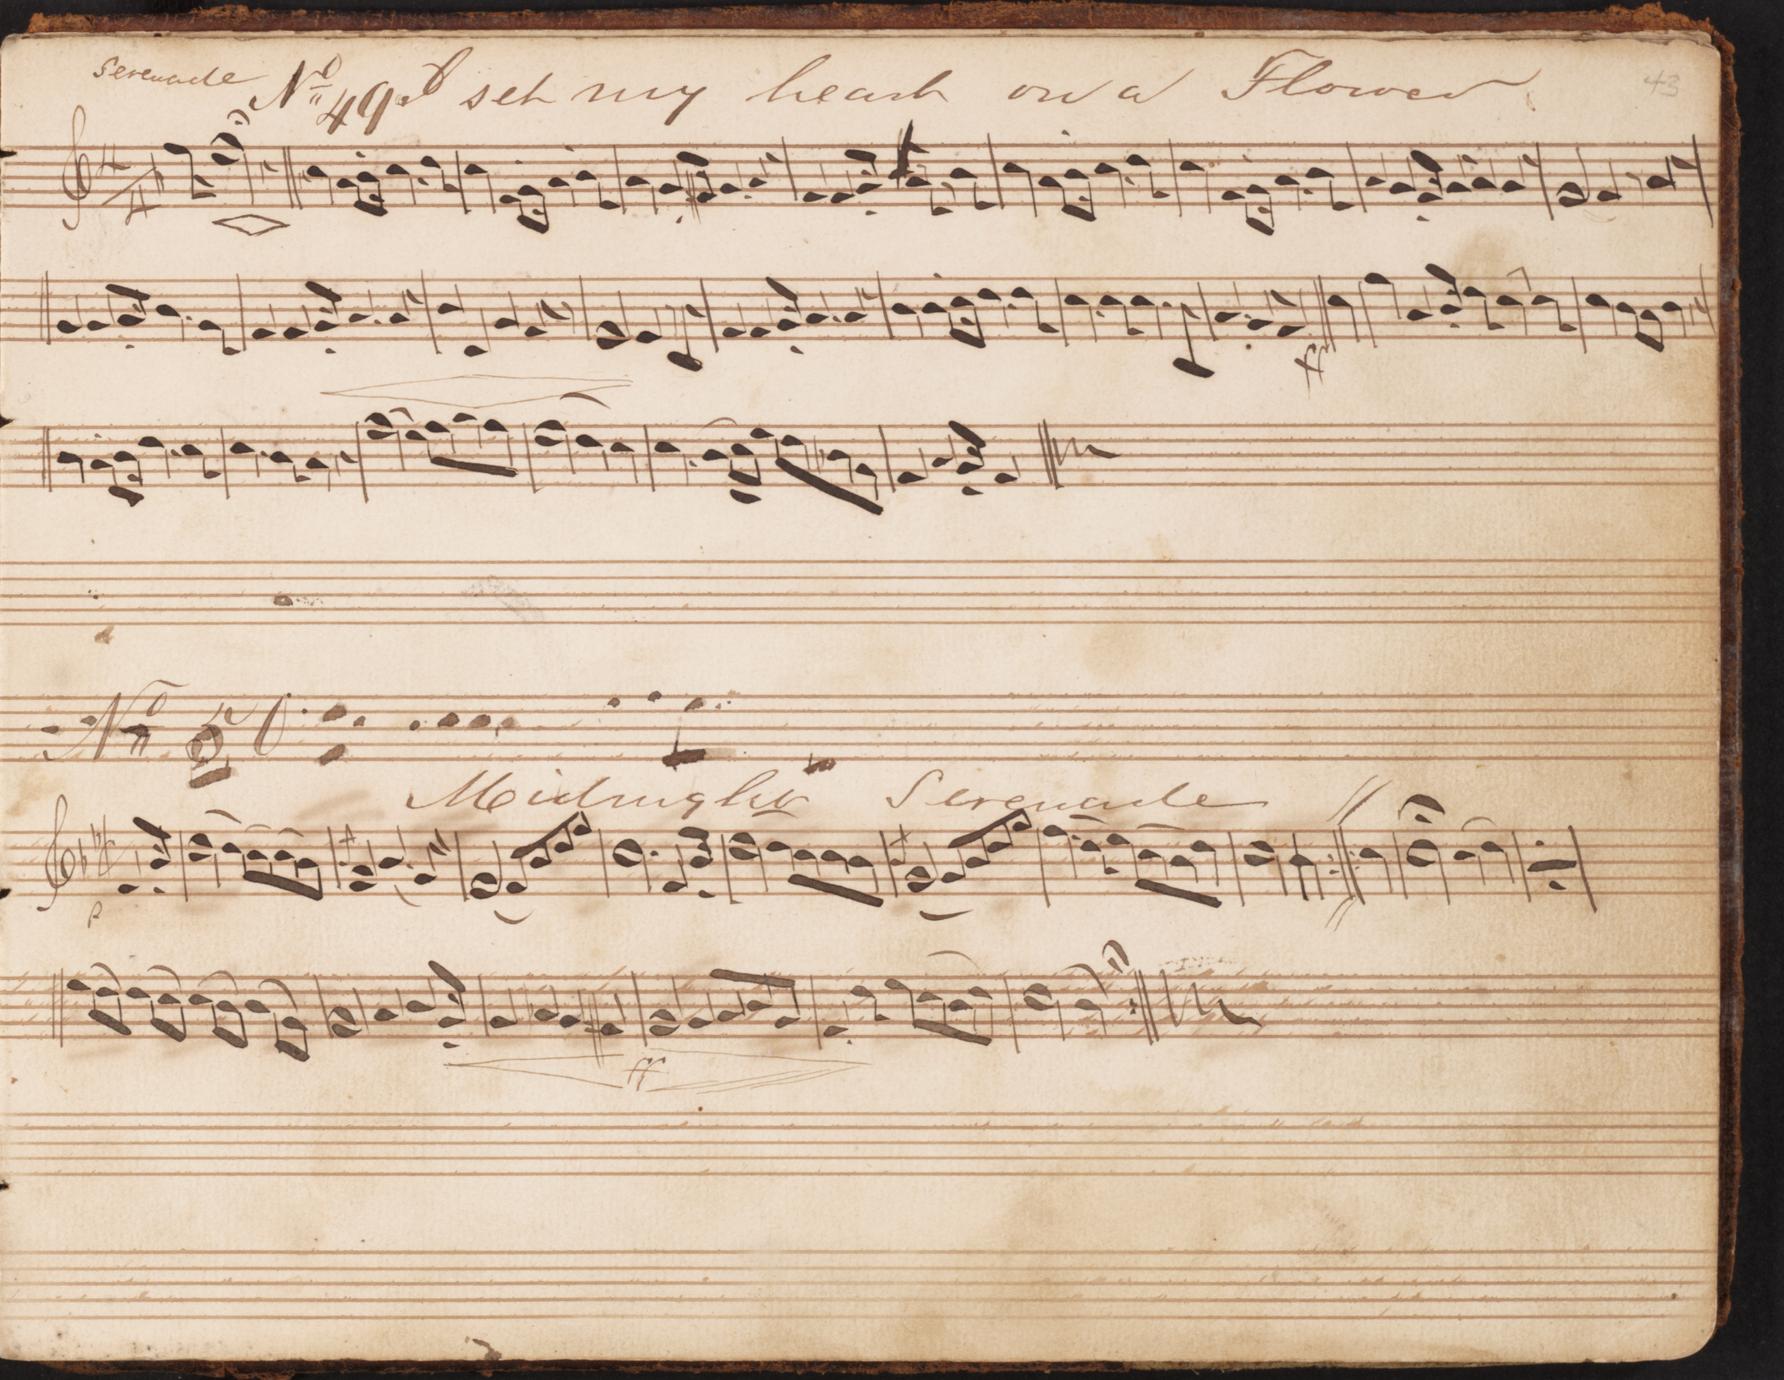 Serenade No 49. I set my heart on a Flower 43
ff
No 50.
Midnight Serenade
p
ff